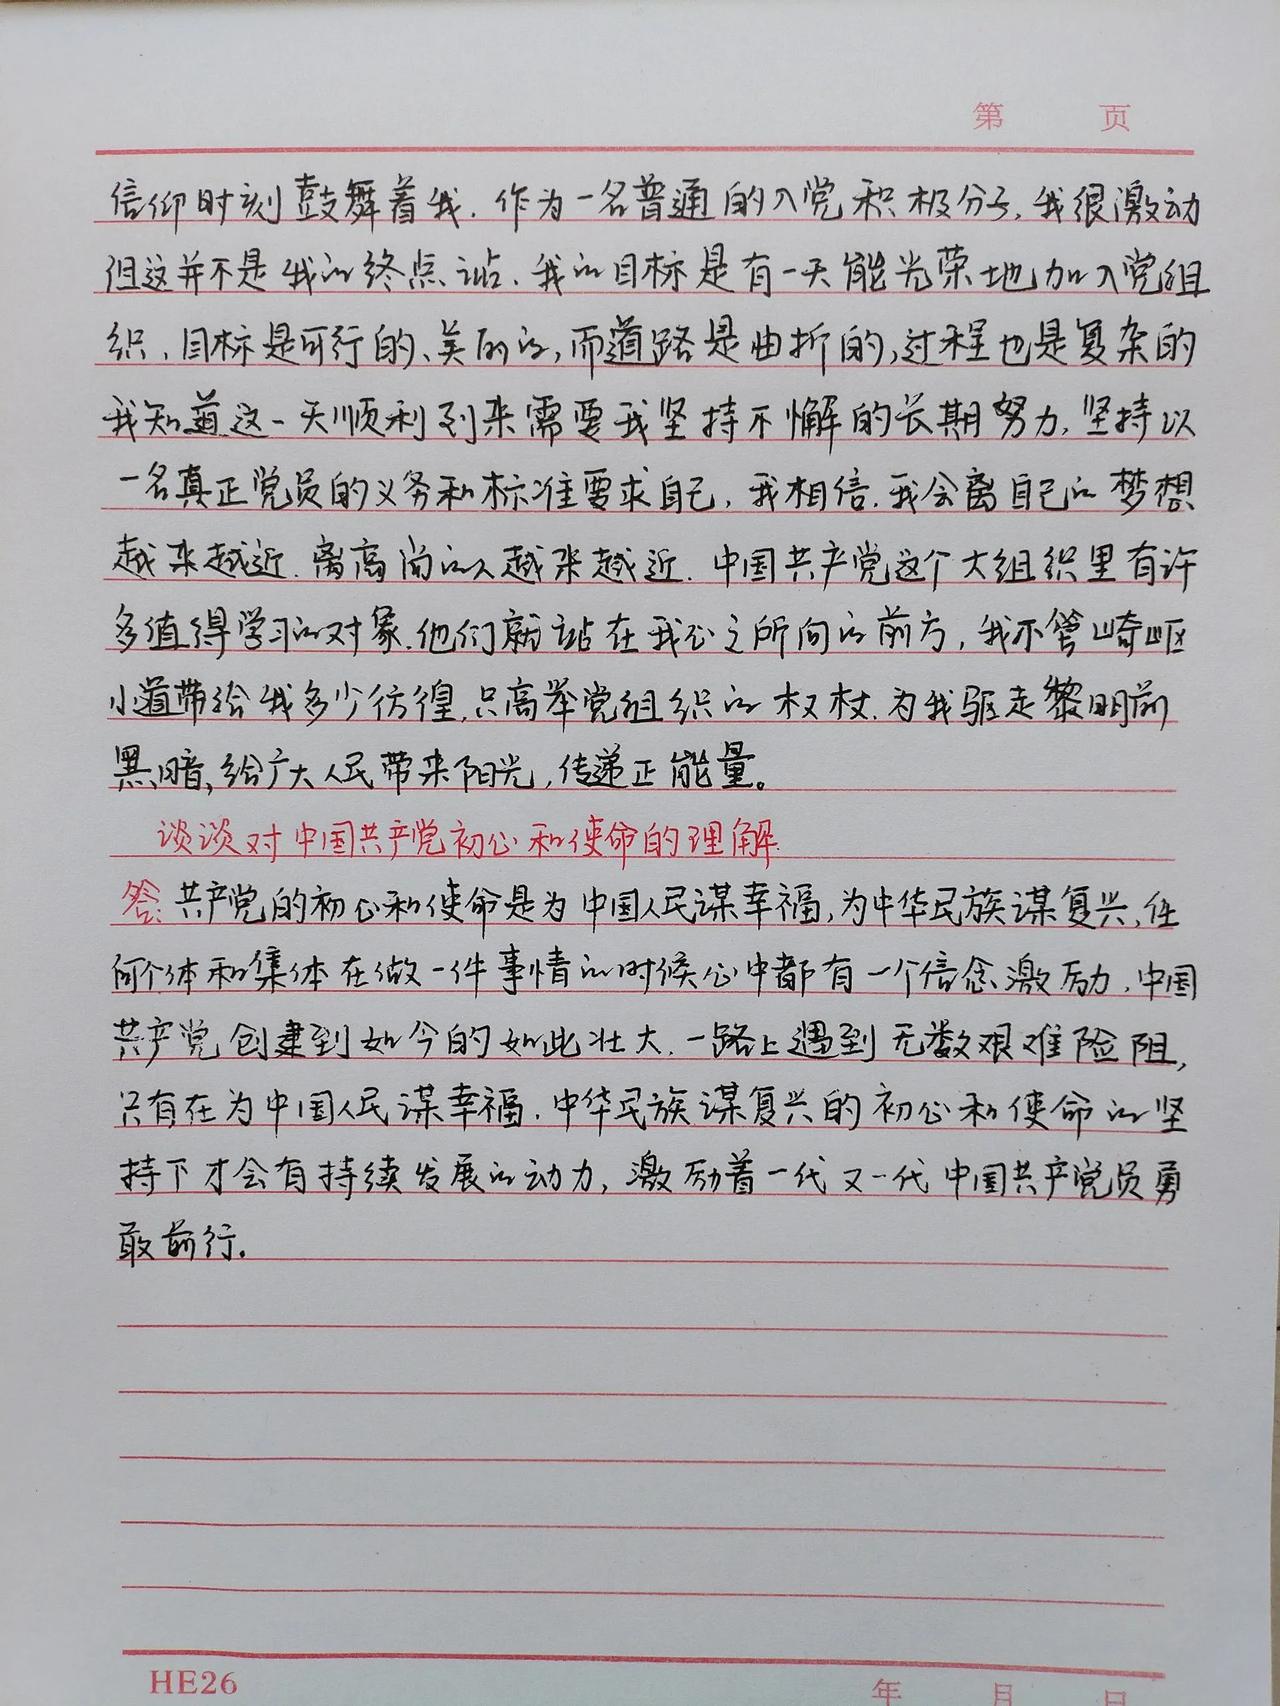 第 页
信仰时刻鼓舞着我.作为一名普通的入党积极分子,我很激动
但这并不是我的终点站.我的目标是有一天能光荣地加入党组
织,目标是可行的、美的的,而道路是曲折的,过程也是复杂的
我知道这一天顺利到来需要我坚持不懈的长期努力,坚持以
一名真正党员的义务和标准要求自己,我相信.我会离自己的梦想
越来越近.离高尚的人越来越近.中国共产党这个大组织里有许
多值得学习的对象.他们就站在我心之所向的前方,我不管崎岖
小道带给我多少彷徨,只高举党组织的权杖.为我驱走黎明前
黑暗,给广大人民带来阳光,传递正能量。
谈谈对中国共产党初心和使命的理解.
答:共产党的初心和使命是为中国人民谋幸福,为中华民族谋复兴,任
何个体和集体在做一件事情的时候心中都有一个信念激励.中国
共产党创建到如今的如此壮大.一路上遇到无数艰难险阻,
只有在为中国人民谋幸福.中华民族谋复兴的初心和使命的坚
持下才会有持续发展的动力,激励着一代又一代中国共产党员勇
敢前行.
HE26
年 月 日